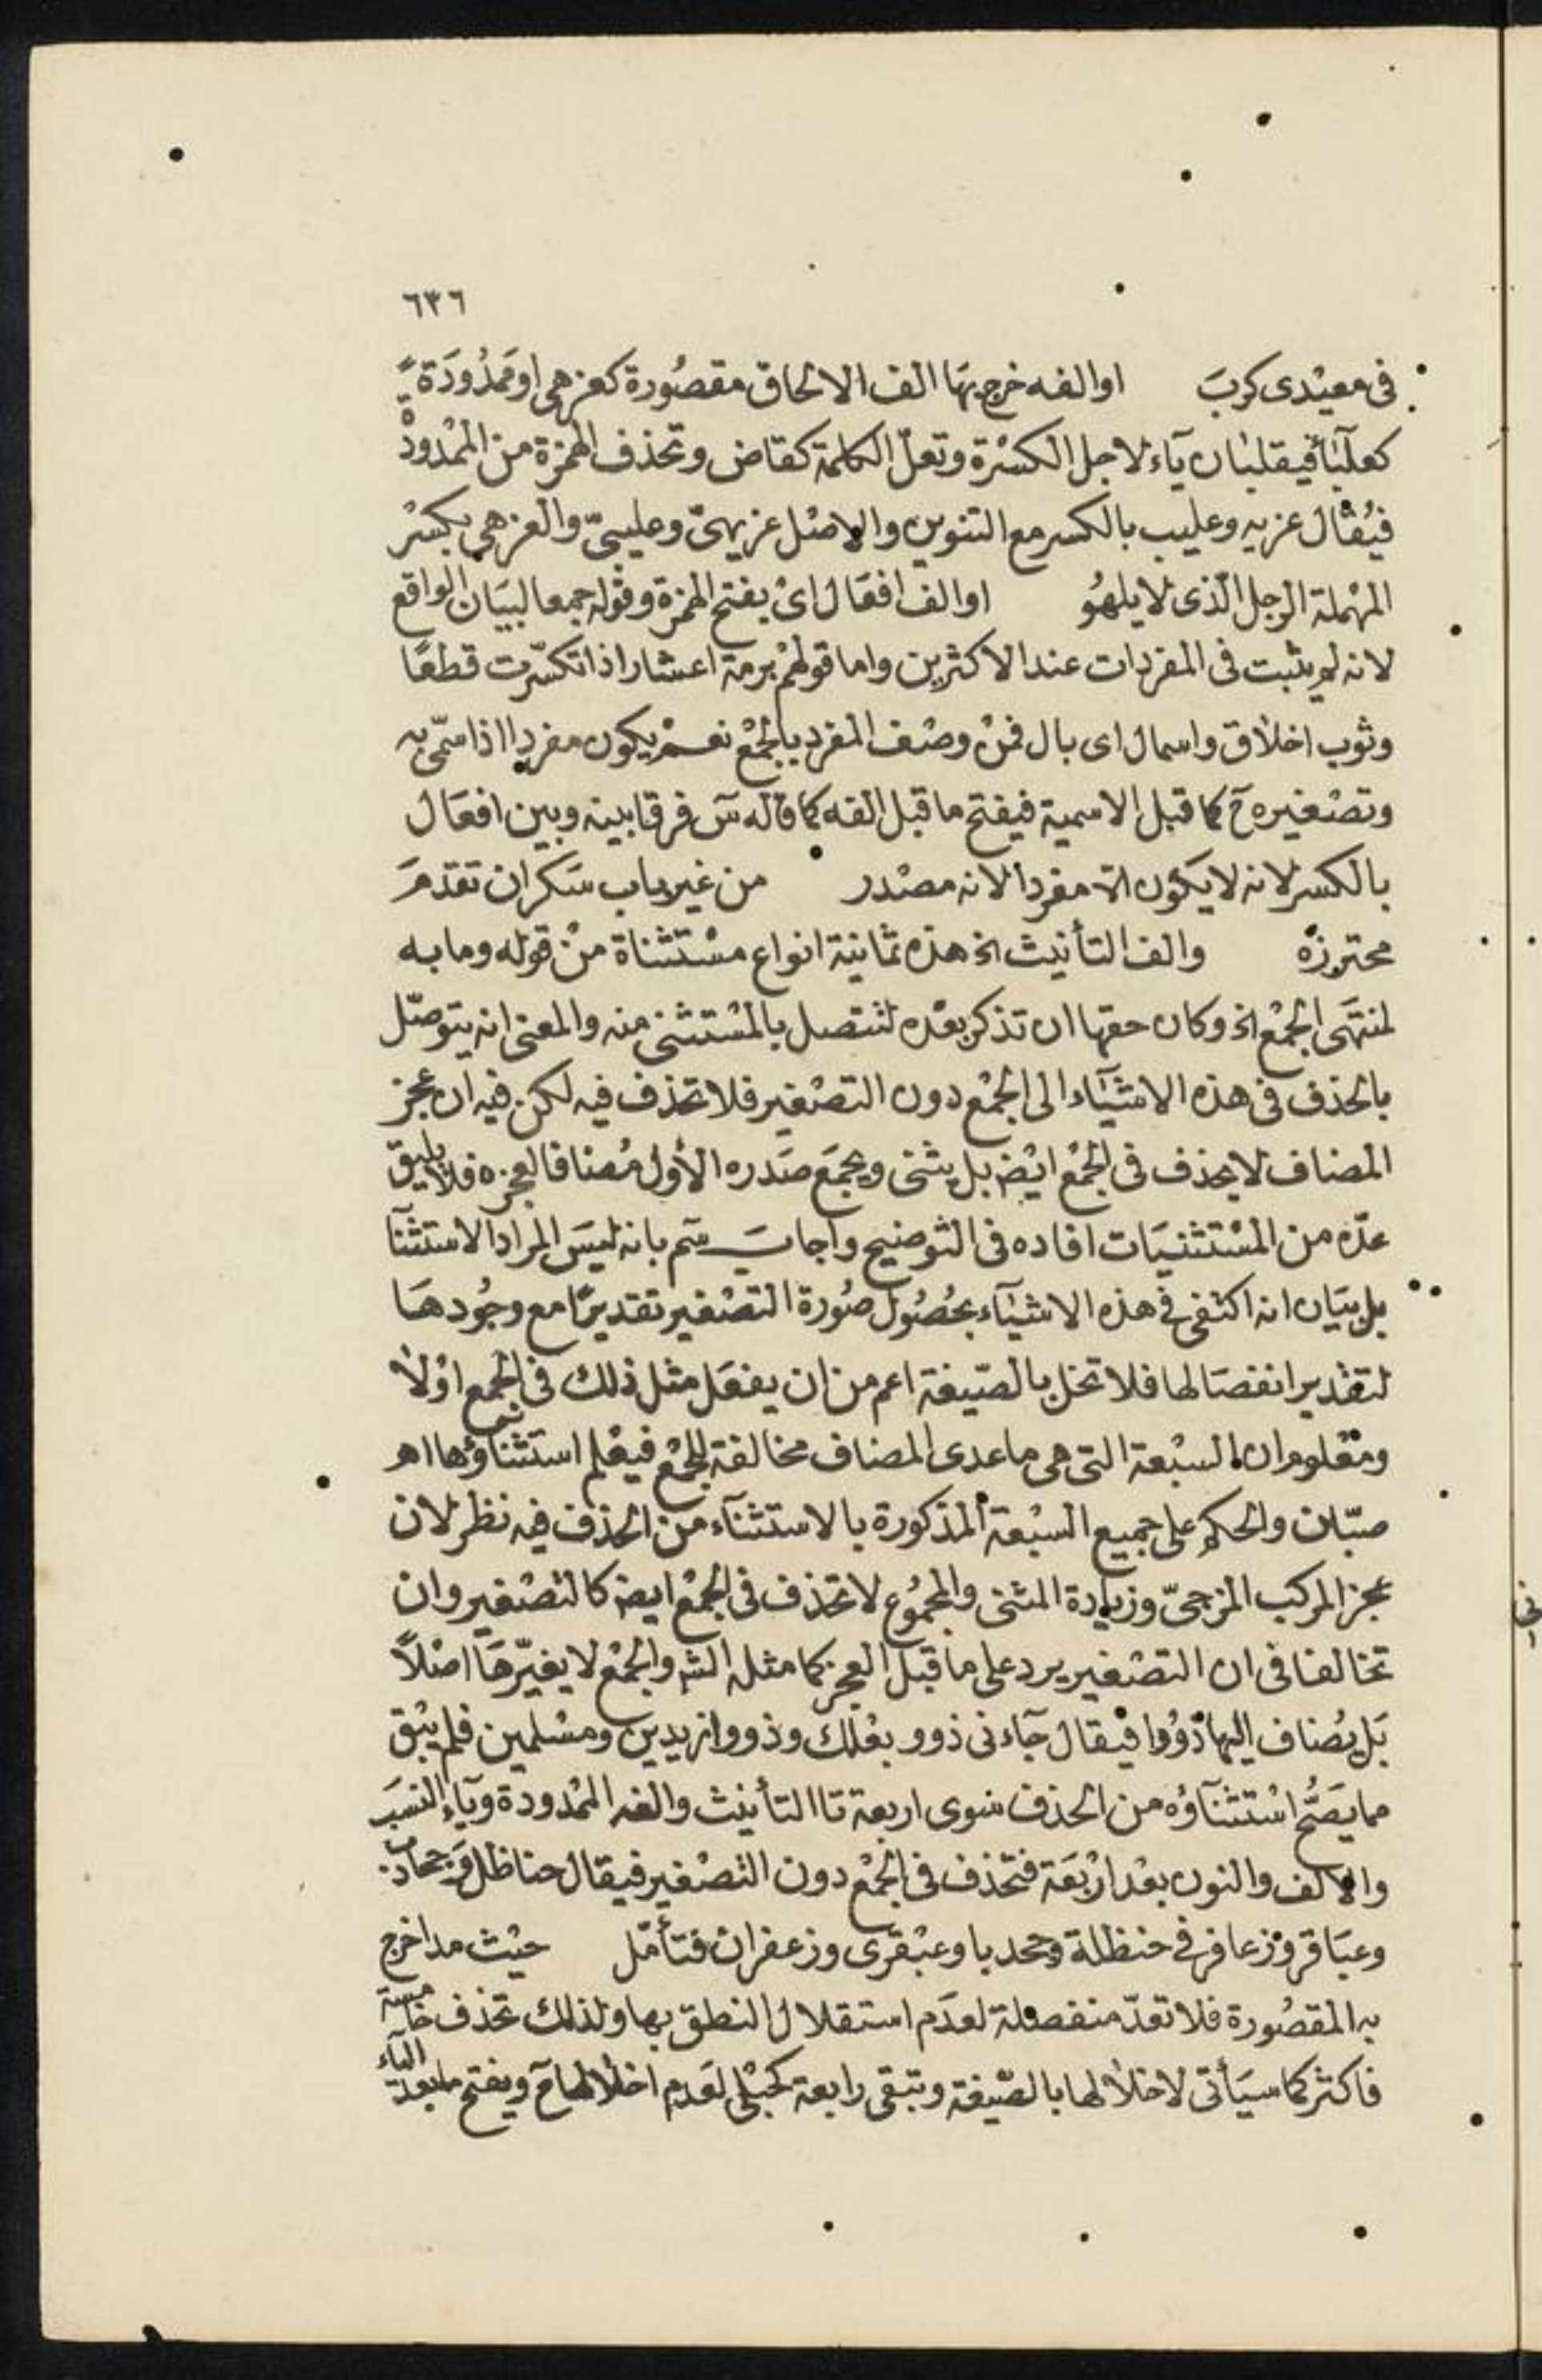 ٦٣٦
فى معيْدى كربَ او الفه خرج بهَا الف الالحاق مقصُورة كعزهى او مَمدُودَة
كعلبَآء فيقلبان يآء لاجل الكسْرة وتعلّ الكلمة كقاض وتحذف الهمزة من الممْدودْ
فيُقال عزيه وعليب بالكسر مع التنوين والاصْل عزيهىٌ وعليبىٌ والعزهى بكسْر
المهْملة الرجل الّذى لا يلهُو او الف افعَال اىْ بفتح الهمزة وقوله جمعا لبيَان الواقع
لانه لم يثبت فى المفردات عند الاكثرين واما قولهمْ برمة اعشار اذا تكسّرت قطعًا
وثوب اخلاق واسمال اى بال فمنْ وصْف المفرد بالجمْع نعـمْ يكون مفردا اذا سمّى به
وتصْغيره ح كما قبل الاسمية فيفتح ما قبل الفه كما قاله سٓ فرقا بينه وبين افعَال
بالكسر لانه لا يكُون الا مفردا لانه مصْدر من غير باب سَكران تقدمَ
محترزهْ والف التأنيث الخ هذه ثمانية انواع مسْتثناة منْ قوله وما به
لمنتهَى الجمْع الخ وكان حقها ان تذكر بعْده لتتصل بالمسْتثنى منه والمعنى انه يتوصّل
بالحذف فى هذه الاشيَآء الى الجمْع دون التصْغير فلا تحذف فيه لكن فيه ان عجز
المضاف لا يحذف فى الجمْع ايْض بل يثنى ويجمَع صَدره الأول مُضافا لعجزه فلا يليق
عدّه من المسْتثنيَات افاده فى التوضيح واجابَ سٓم بانه ليسَ المراد الاستثنآ
بل بيَان انه اكتفى فى هذه الاشيَآء بحُصُول صُورة التصْغير تقديرًا مع وجُودهَا
لتقْدير انفصَالها فلا تخل بالصّيغة اعم من ان يفعَل مثل ذلك فى الجمع اوْ لا
ومعْلوم ان السبْعة التى هى ما عدى المضاف مخالفة للجمْع فيعْلم استثناؤها اهـ
صبّان والحكم على جميع السبْعة المذكورة بالاستثنآء من الحذف فيه نظر لان
عجز المركب المزجىّ وزيادة المثنى والمجمُوع لا تحذف فى الجمْع ايضا كالتصْغير وان
تخالفا فى ان التصْغير يرد على ما قبل العجز كما مثله الشه والجمْع لا يغيّرهَا اصْلاً
بَل يُضاف اليها ذوُوا فيُقال جآءنى ذوو بعْلبك وذووا زيدين ومسْلمين فلم يبْق
مما يَصحُّ اسْتثنآؤه من الحذف سوى اربعة تا التأنيث والفه الممْدودة ويآء النسَب
والالف والنون بعْد ارْبعَة فتحْذف فى الجمْع دون التصْغير فيقال حناظل وَجحادب
وعبَاقر وزعافر فى حنظلة وجحدبا وعبْقرى وزعفران فتأمّل حيْث مدا خرج
به المقصُورة فلا تعدّ منفصلة لعدَم استقلال النطق بها ولذلك تحذف خامسة
فاكثر كما سيَأتى لاخلالها بالصّيغة وتبقى رابعة كحبْلى لعَدم اخلالها ح ويفتح ما بعد اليآء